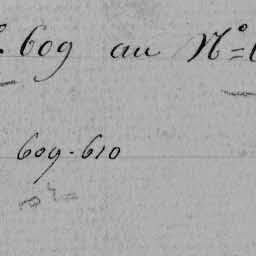 609 au Nº=
609-610